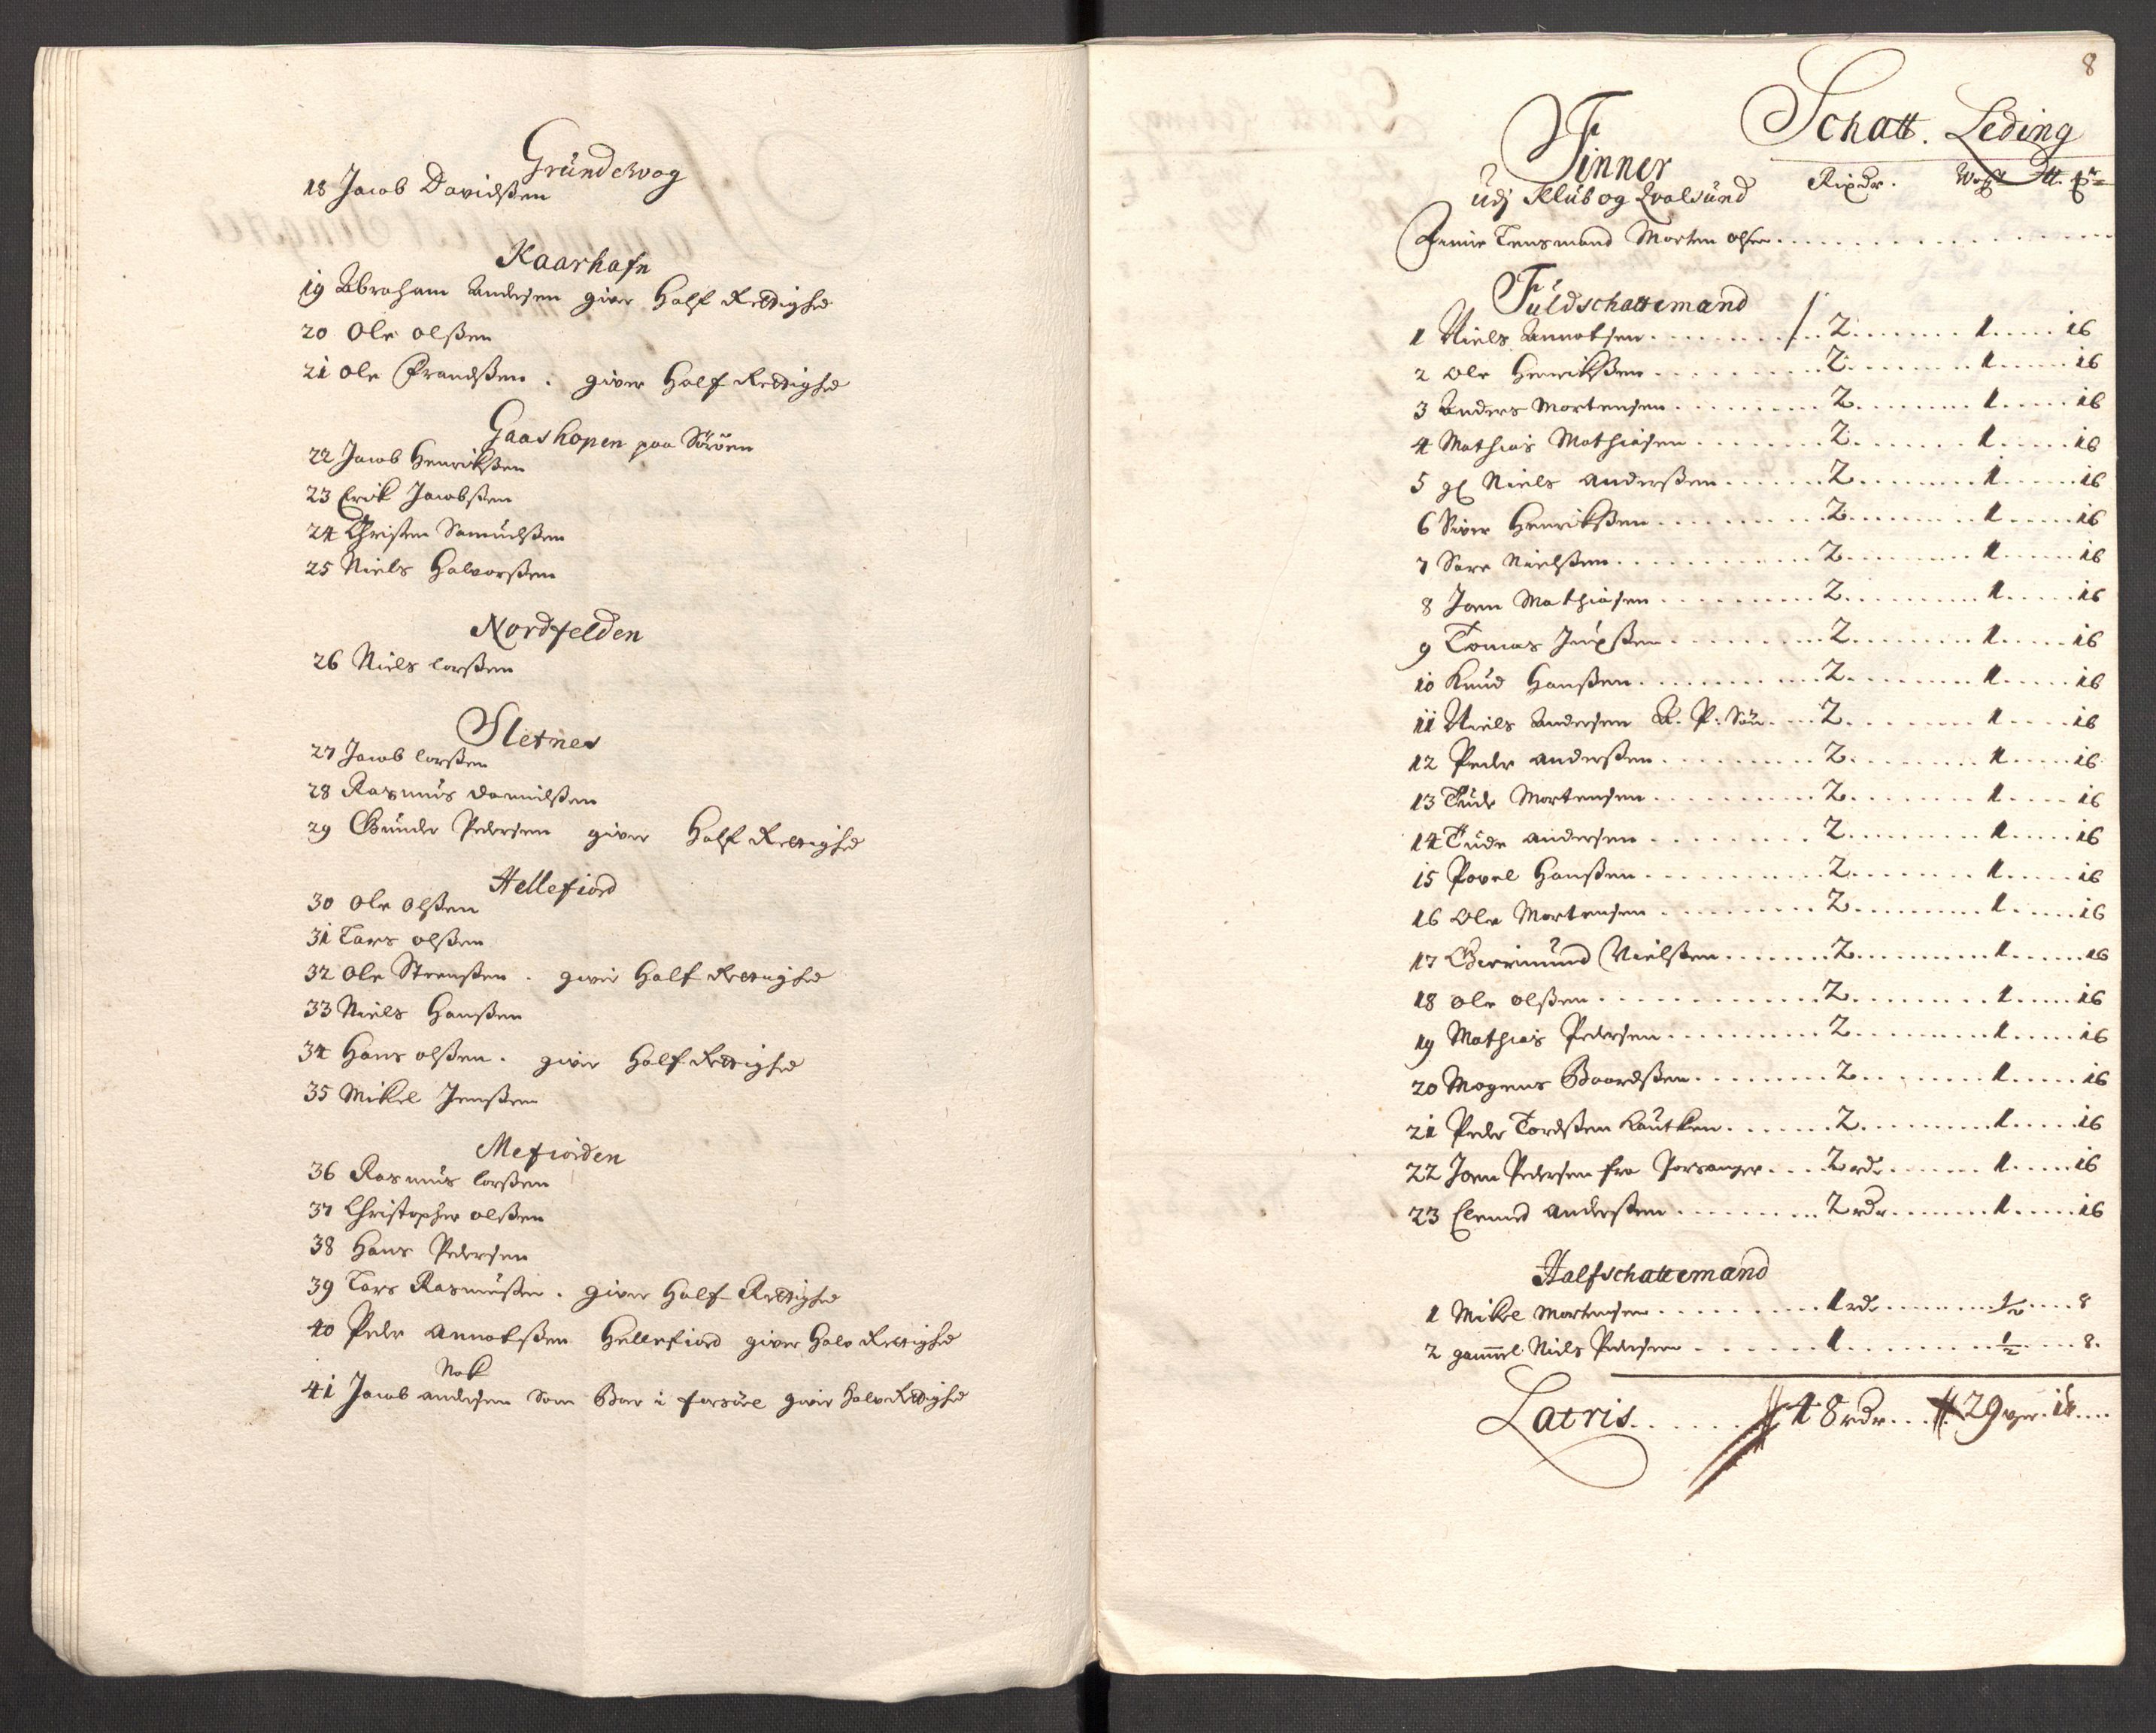 Gründewog
18 Jacob Davidßen
Kaarhafn
19 Abraham Andersen giver Half Rettighed
20 Ole olßen
21 Ole Frandßen . giver Half Rettighed
Gaashopen paa Söröen
22 Jacob Henrikßen
23 Erick Jacobßen
24 Christen Samuelßen
25 Niels Halvorßen
Nordfelden
26 Niels larßen
Sletnes
27 Jacob larßen
28 Rasmus Danielßen
29 Gunder Pedersen giver Half Rettighed
Hellefiord
30 Ole Olßen
31 Lars olßen
32 Ole Stenßen . giver Half Rettighed
33 Niels Hanßen
34 Hans olßen . giver Half Rettighed
35 Mikel Jenßen
Mefiorden
36 Rasmus larßen
37 Christopher olßen
38 Hans Pedersen
39 Lars Rasmußen . giver Half Rettighed
40 Peder Amnotßen Hellefiord giver Halv Rettighed
Nok
41 Jacob andersen som Boer i giver Halv Rettighed
8
Schatt. Leding
Finner
Rixdr. Wog tt.
Udj Klub og Qvalsund
Lensmand Morten olsen
Fuldschattemand
1 Niels Amnotsen 2 1 16
2 Ole Henrikßen 2 1 16
3 Anders Mortensen 2 1 16
4 Mathias Mathiasen 2 1 16
5 gl Niels Anderßen 2 1 16
6 Siver Henrikßen 2 1 16
7 Sare Nielßen 2 1 16
8 Joen Mathiasen 2 1 16
9 Tomas 2 1 16
10 Knud Hanßen 2 1 16
11 Niels Andersen A. P. Sön 2 1 16
12 Peder anderßen 2 1 16
13 Tude Mortensen 2 1 16
14 Tude andersen 2 1 16
15 Povel Hanßen 2 1 16
16 Ole Mortensen 2 1 16
17 Germund Nielßen 2 1 16
18 ole olßen 2 1 16
19 Mathias Pedersen 2 1 16
20 Mogens Baardßen 2 1 16
21 Peder Tordßen 2 1 16
22 Joen Pedersen fra Porsanger 2 rdr 1 16
23 Clemed Anderßen 2 rdr 1 16
Halfschattemand
1 Mikel Mortensen 1 rdr ½ 8
2 gammel Niels Pedersen 1 ½ 8.
Latris 48 rdr 29